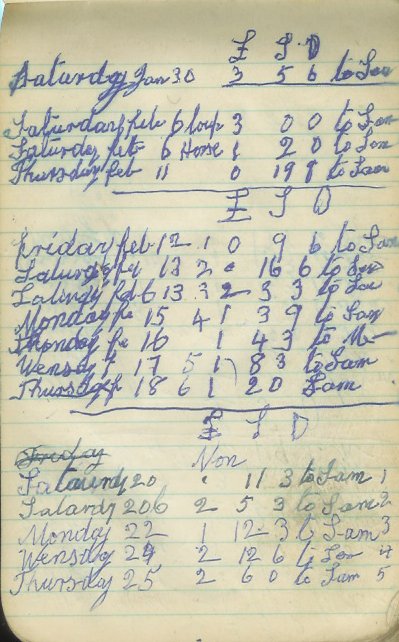 £ S D
Saturday Jan 30 3 5 6 to Sam
Saturday feb 6 3 0 0 to Sam
Saturday feb 6 Horse 1 2 0 to Sam
Thursday feb 11 0 19 to Sam
£ S D
friday feb 12 1 0 9 6 to Sam
Saturday 13 2 16 6 to Sam
13 3 2 3 3 to Sam
Monday fe 15 4 1 3 9 to Sam
fe 16 1 4 3 to
Wensdy f 17 5 1 8 3 to Sam
Thursday f 18 6 1 2 0 Sam
£ S D
Friday Non
20 11 3 to Sam 1
206 2 5 3 to Sam 2
Monday 22 1 12 3 to Sam 3
Wensday 24 2 12 6 to Sam 4
Thursday 25 2 6 0 to Sam 5